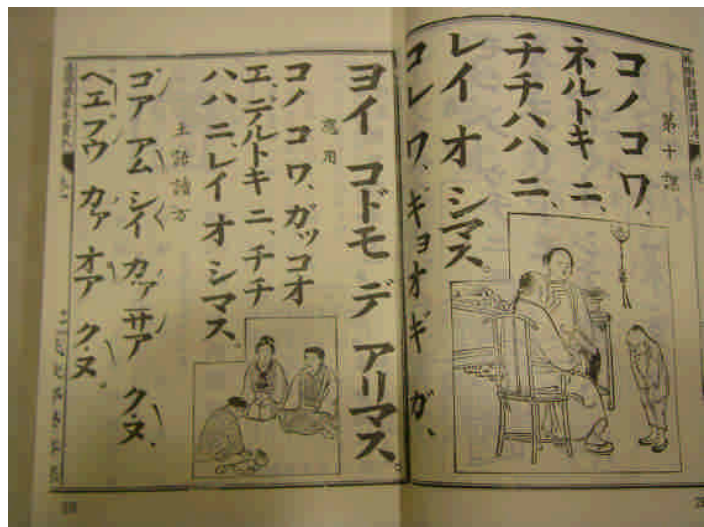 第十課
コノ コ ワ、
ネルトキ ニ、
チチハハ ニ、
レイ オ シマス。
コレ ワ、ギョオギ ガ、
ヨイ コドモ デ アリマス。
應用
コノ コ ワ、ガッコオ
エ、デルトキ ニ、チチ
ハハ ニ、レイ オ シマス。
土語讀方
ゴア アム シイ カァ サア ク・ヌ、
ヘエ プウ カァ オア ク・ヌ。